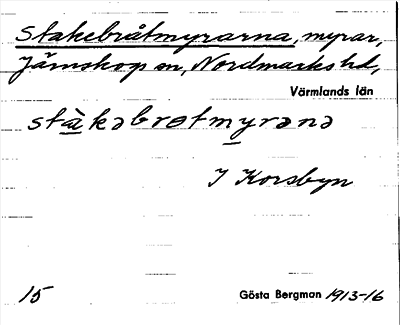 Stakebråtmyrarna, myrar,
Järnskog sn, Nordmarks hd,
Värmlands län
stàkəbrɵtmyrənə
I Korsbyn
15 Gösta Bergman 1913-16